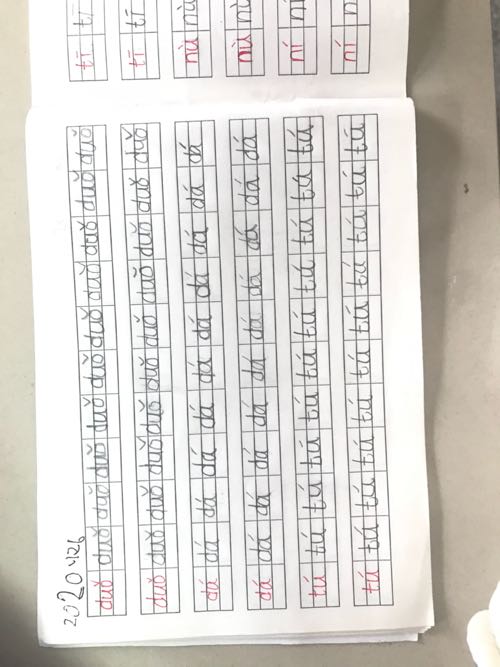 2020 4.26
duǒ duǒ duǒ duǒ duǒ duǒ duǒ duǒ duǒ duǒ duǒ
duǒ duǒ duǒ duǒ duǒ duǒ duǒ duǒ duǒ duǒ duǒ
dá dá dá dá dá dá dá dá dá dá dá
dá dá dá dá dá dá dá dá dá dá dá
tú tú tú tú tú tú tú tú tú tú tú
tú tú tú tú tú tú tú tú tú tú tú
tī tī
tī tī
nù nù
nù nù
ní
ní